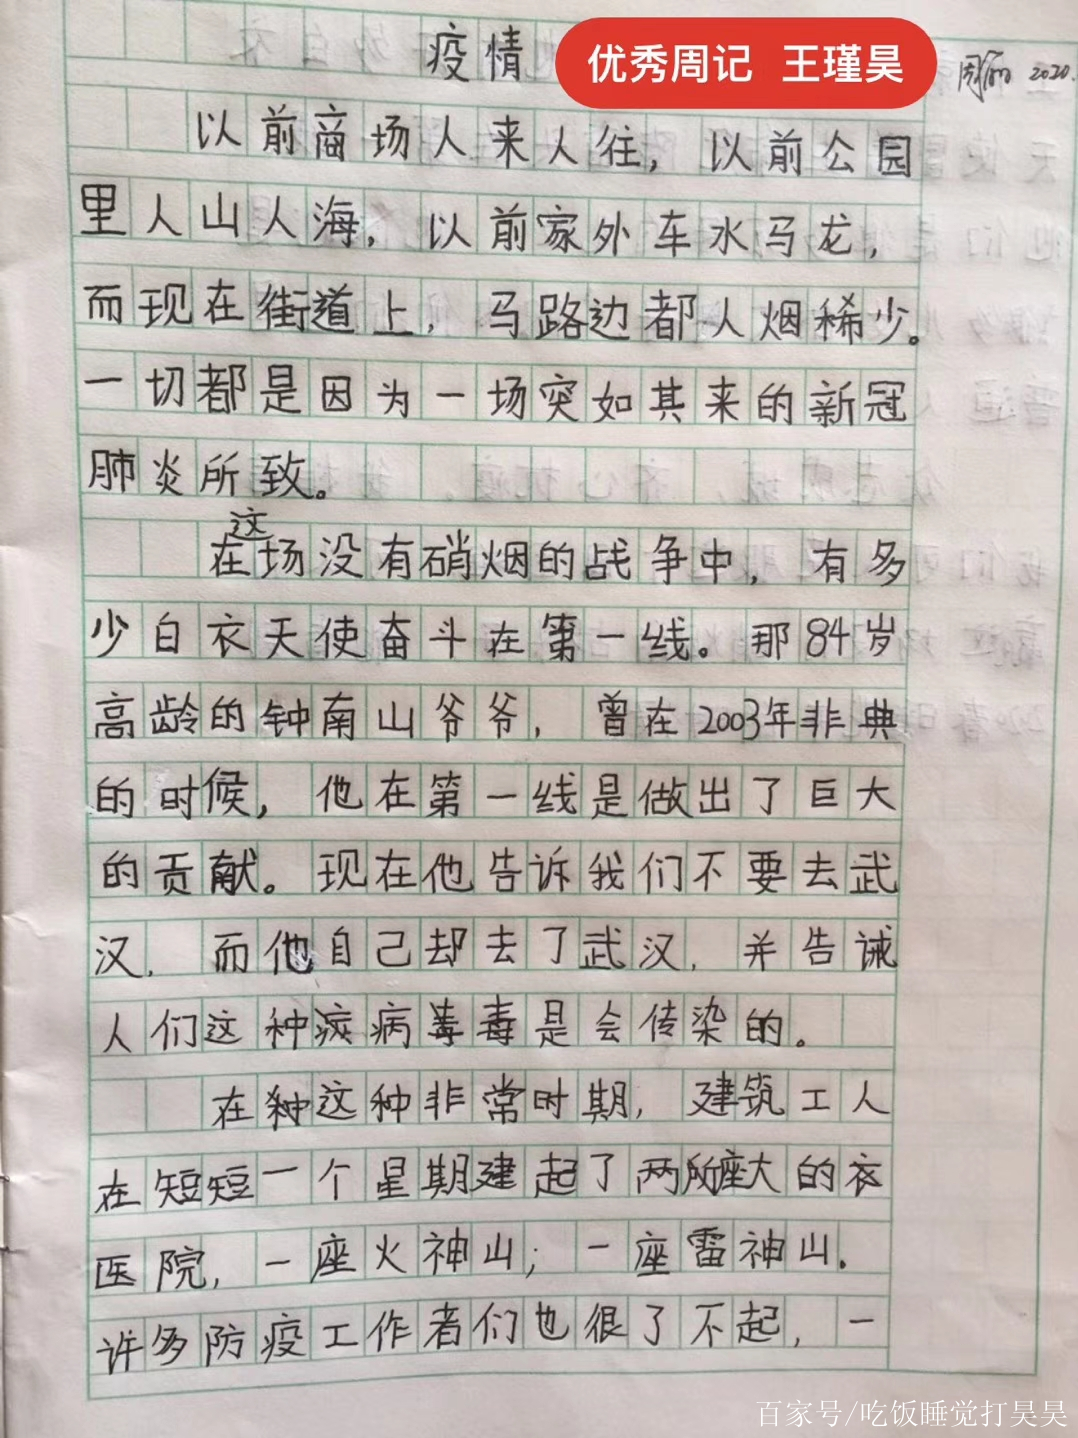 疫情
优秀周记 王瑾昊
2020.
以前商场人来人往，以前公园
里人山人海，以前家外车水马龙，
而现在街道上，马路边都人烟稀少。
一切都是因为一场突如其来的新冠
肺炎所致。
在这场没有硝烟的战争中，有多
少白衣天使奋斗在第一线。那84岁
高龄的钟南山爷爷，曾在2003年非典
的时候，他在第一线是做出了巨大
的贡献。现在他告诉我们不要去武
汉，而他自己却去了武汉，并告诫
人们这种病毒是会传染的。
在这种非常时期，建筑工人
在短短一个星期建起了两座大的
医院，一座火神山；一座雷神山.
许多防疫工作者们也很了不起，一
百家号/吃饭睡觉打昊昊